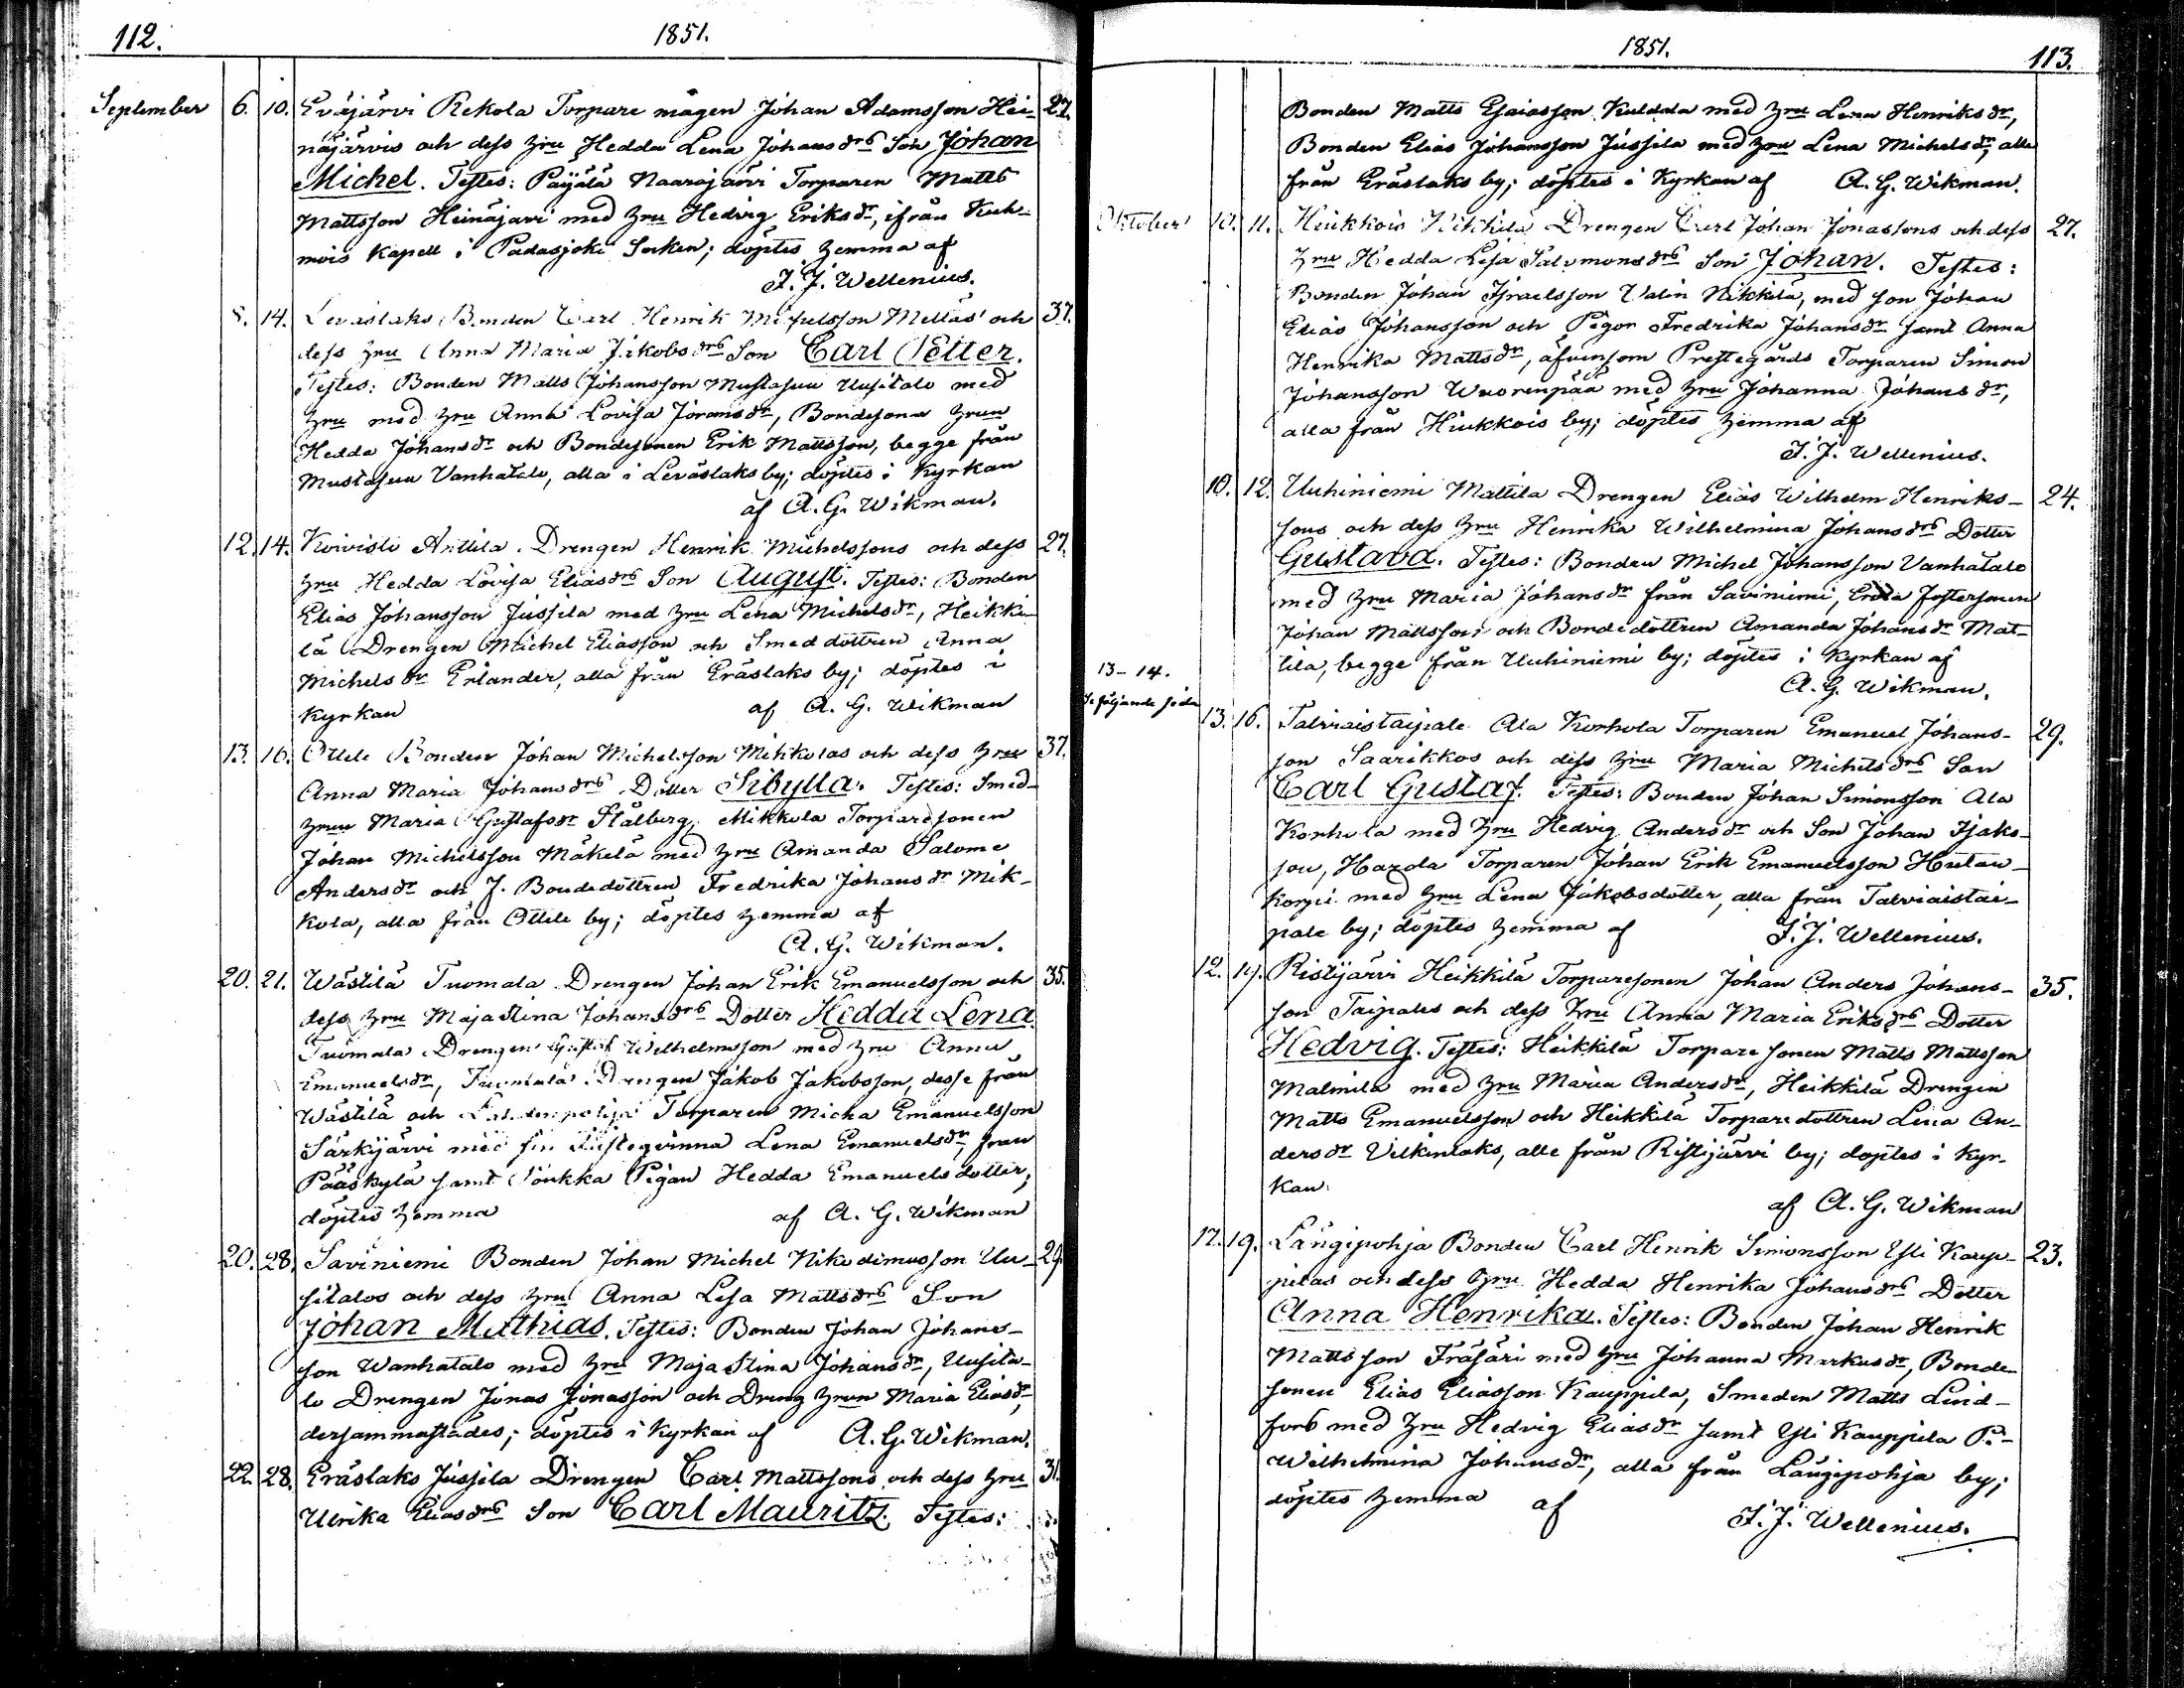 112.
1851.
September 6. 10. Eväjärvi Rekola Torpare mågen Johan Adamsson Hei- 27.
näjärvis och dess hru Hedda Lena Johansdrs Son Johan
Michel. Testes: Päijälä Naarajärvi Torparen Matts
Mattsson Heinäjärvi med hru Hedvig Eriksdr, ifrån Kuh-
mois Kapell i Padasjoki Socken; döptes hemma af
F. J. Wellenius.
8. 14. Leväslaks Bonden Carl Henrik Michelsson Melläs och 37.
dess hru Anna Maria Jakobsdrs Son Carl Petter.
Testes: Bonden Matts Johansson Mustasuu Uusitalo med
hru med hru Anna Lovisa Jöransdr, Bondesons hrun
Hedda Johansdr och Bondesonen Erik Mattsson, begge från
Mustasuu Vanhatalo, alla i Leväslaks by; döptes i Kyrkan
af A. G. Wikman.
12. 14. Koivisto Anttila Drengen Henrik Michelssons och dess 27.
hru Hedda Lovisa Eliasdrs Son August. Testes: Bonden
Elias Johansson Jussila med hru Lena Michelsdr, Heikki-
lä Drengen Michel Eliasson och Smeddottren Anna
Michelsdr Erlander, alla från Eräslaks by; döptes i
Kyrkan af A. G. Wikman
13. 16. Ottile Bonden Johan Michelsson Mikkolas och dess hru 37.
Anna Maria Johansdrs Dotter Sibylla. Testes: Smed-
hrun Maria Gustafsdr Stålberg, Mikkola Torparesonen
Johan Michelsson Mäkelä med hru Amanda Salome
Andersdr och J. Bondedottren Fredrika Johansdr Mik-
kola, alla från Ottile by; döptes hemma af
A. G. Wikman.
20. 21. Wästilä Tuomala Drengen Johan Erik Emanuelsson och 35.
dess hru Maja Stina Johansdrs Dotter Hedda Lena.
Tuomala Drengen Gustaf Wilhelmsson med hru Anna
Emanuelsdr, Tuomala Drengen Jakob Jakobsson, desse från
Wästilä och Torparen Micka Emanuelsson
Särkijärvi med sin Lena Emanuelsdr, från
Pääskylä samt Pigan Hedda Emanuels dotter;
döptes hemma af A. G. Wikman
20. 28. Saviniemi Bonden Johan Michel Nikodimusson Uu- 29.
sitalos och dess hru Anna Lisa Mattsdrs Son
Johan Mathias. Testes: Bonden Johan Johans-
son Wanhatalo med hru Maja Stina Johansdr, Uusita-
lo Drengen Jonas Jonasson och Dreng hrun Maria Eliasdr,
dersammastädes; döptes i Kyrkan af A. G. Wikman.
22. 28. Eräslaks Jussila Drengen Carl Mattssons och dess hru 31.
Ulrika Eliasdrs Son Carl Mauritz. Testes:
1851.
113.
Bonden Matts Esaiasson Kuldala med hru Lena Henriksdr,
Bonden Elias Johansson Jussila med hru Lena Michelsdr, alla
från Eräslaks by; döptes i Kyrkan af A. G. Wikman.
Oktober 10. 11. Hiukkois Nikkilä Drengen Carl Johan Jonassons och dess 27.
hru Hedda Lisa Salomonsdrs Son Johan. Testes:
Bonden Johan Israelsson Valin Nikkilä, med son Johan
Elias Johansson och Pigan Fredrika Johansdr samt Anna
Henrika Mattsdr, äfvensom Prestegårds Torparen Simon
Johansson Wuorenpää med hru Johanna Johansdr,
alla från Hiukkois by; döptes hemma af
F. J. Wellenius.
10. 12. Uuhiniemi Mattila Drengen Elias Wilhelm Henriks- 24.
sons och dess hru Henrika Wilhelmina Johansdrs Dotter
Gustava. Testes: Bonden Michel Johansson Vanhatalo
med hru Maria Johansdr från Saviniemi, Fostersonen
Johan Mattsson och Bondedottren Amanda Johansdr Mat-
tila, begge från Uuhiniemi by; döptes i Kyrkan af
A. G. Wikman.
13-14.
Se följande sida
13. 16. Talviaistaipale Ala Korhola Torparen Emanuel Johans- 29.
son Saarikkos och dess hru Maria Michelsdrs Son
Carl Gustaf. Testes: Bonden Johan Simonsson Ala
Korhola med hru Hedvig Andersdr och Son Johan Isaks-
son, Torparen Johan Erik Emanuelsson
korpi med hru Lena Jakobsdotter, alla från Talviaistai-
pale by; döptes hemma af F. J. Wellenius.
12. 19. Ristijärvi Heikkilä Torparesonen Johan Anders Johans- 35.
son Taipales och dess hru Anna Maria Eriksdrs Dotter
Hedvig. Testes: Heikkilä Torparesonen Matts Mattsson
Malmila med hru Maria Andersdr, Heikkilä Drengen
Matts Emanuelsson och Heikkilä Torparedottren Lena An-
dersdr Vilkinlaks, alla från Ristijärvi by; döptes i Kyr-
kan.
af A. G. Wikman
17. 19. Längipohja Bonden Carl Henrik Simonsson Yli Kaup- 23.
pilas och dess hru Hedda Henrika Johansdrs Dotter
Anna Henrika. Testes: Bonden Johan Henrik
Mattsson Fräsäri med hru Johanna Markusdr, Bonde-
sonen Elias Eliasson Kauppila, Smeden Matts Lind-
fors med hru Hedvig Eliasdr samt Yli Kauppila P.
Wilhelmina Johansdr, alla från Längipohja by;
döptes hemma af F. J. Wellenius.